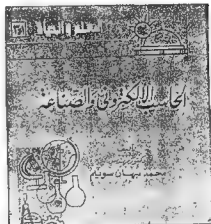 العلم والحياة ٣١
الحاسب الإلكتروني والصناعة
محمد نبهان سويلم